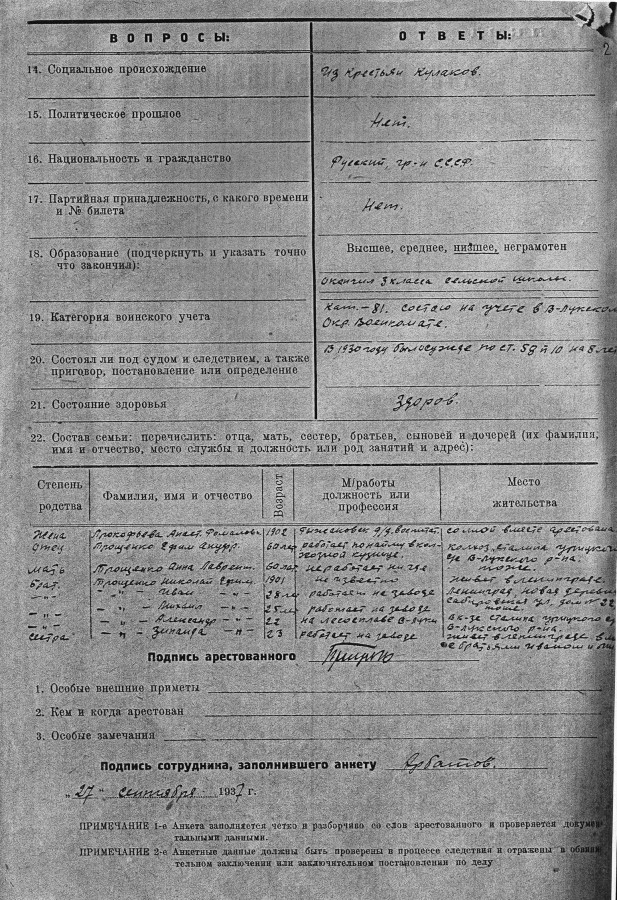 2
ВОПРОСЫ: ОТВЕТЫ:
14. Социальное происхождение Из крестьян кулаков.
15. Политическое прошлое Нет.
16. Национальность и гражданство Русский, гр-н С.С.С.Р.
17. Партийная принадлежность, с какого времени
и № билета Нет.
Высшее, среднее, низшее, неграмотен
18. Образование (подчеркнуть и указать точно
что закончил):
Окончил 3 класса сельской школы.
19. Категория воинского учета Кат. – 81. состою на учете в В-Лукском
Окр. Военкомате.
20. Состоял ли под судом и следствием, а также
приговор, постановление или определение В 1930 году был осужде по ст. 58 п 10 на 8 лет
21. Состояние здоровья Здоров.
22. Состав семьи: перечислить: отца, мать, сестер, братьев, сыновей и дочерей (их фамилия,
имя и отчество, место службы и должность или род занятий и адрес):
Степень родства Фамилия, имя и отчество Возраст М/работы должность или профессия Место жительства
Жена Прокофьева Анаст. 1902 д/д. воспит. со мной вместе арестована
Отец Прощенко Ефим 60 лет работает по найму в колхозной кузнице. колхоз. сталина
В-Лукского р-на.
Мать Прощенко Анна Лаврент. 60 лет не работает ни где тоже.
Брат. Прощенко Николай Ефим. 1901 не известно живет в ленинграде.
–"– –"– Иван –"– 28 лет работает на заводе Ленинград, новая деревня
ул. дом № 22
–"– –"– Михаил –"– 25 лет работает на заводе тоже.
–"– –"– Александр –"– 22 на лесосплаве В-Луки к-зе сталина
В-Лукского р-на.
сестра –"– Зинаида –"– 23 работает на заводе живет в ленинграде
с братьями иваном и
Подпись арестованного
1. Особые внешние приметы
2. Кем и когда арестован
3. Особые замечания
Подпись сотрудника, заполнившего анкету Арбатов.
„27" сентября 1937 г.
ПРИМЕЧАНИЕ 1-е Анкета заполняется четко и разборчиво со слов арестованного и проверяется докумен-
тальными данными.
ПРИМЕЧАНИЕ 2-е Анкетные данные должны быть проверены в процессе следствия и отражены в обвини-
тельном заключении или заключительном постановлении по делу